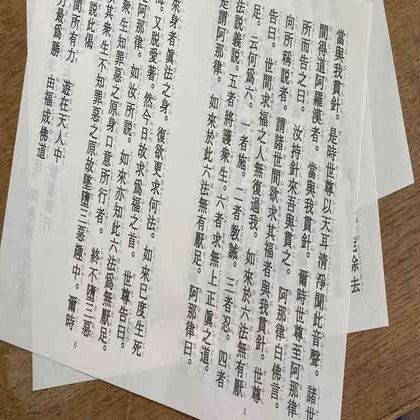 當與我貫針。是時世尊以天耳清淨聞此音聲。諸世
間得道阿羅漢者。當與我貫針。爾時世尊至阿那律
所而告之曰。汝持針來吾與貫之。阿那律白佛言。
向所稱說者。謂諸世間欲求其福者與我貫針。世尊
告曰。世間求福之人無復過我。如來於六法無有厭
足。云何爲六。一者施。二者教誡。三者忍。四者
法說義說。五者將護衆生。六者求無上正眞之道。
是謂阿那律。如來於此六法無有厭足。阿那律
來身者眞法之身。復欲更求何法。如來已度生死
海。又脫愛著。然今日故求爲福之首。世尊告曰。
阿那律。如汝所說。如來亦知此六法爲無厭足。
衆生知罪惡之原身口意所行者。終不墮三惡
其衆生不知罪惡之原故墜墮三惡趣中。爾時
說此偈
力最爲勝
所有力 遊在天人中
由福成佛道
余去